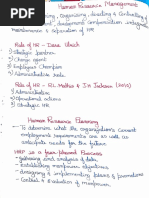 Human Resource Management
planning, organising, directing & controlling of
development compensation integration
maintenance & separation of HR
Role of HR - Dave Ulrich
1) Strategic partner
2) Change agent
3) Employee Champion
4) Administrative role
Role of HR - R.L Mathis & J.H Jackson (2010)
1) Administrative
2) Operational actions
3) Strategic HR
Human Resource Planning
- To determine what the organisation's current
employment requirements to accomplish its
objective.
HRP is a four-phased Process
- gathering and analysis of data
- Establishing manpower objectives
- designing and implementing plans & promotions
- Control & evaluation of manpower.